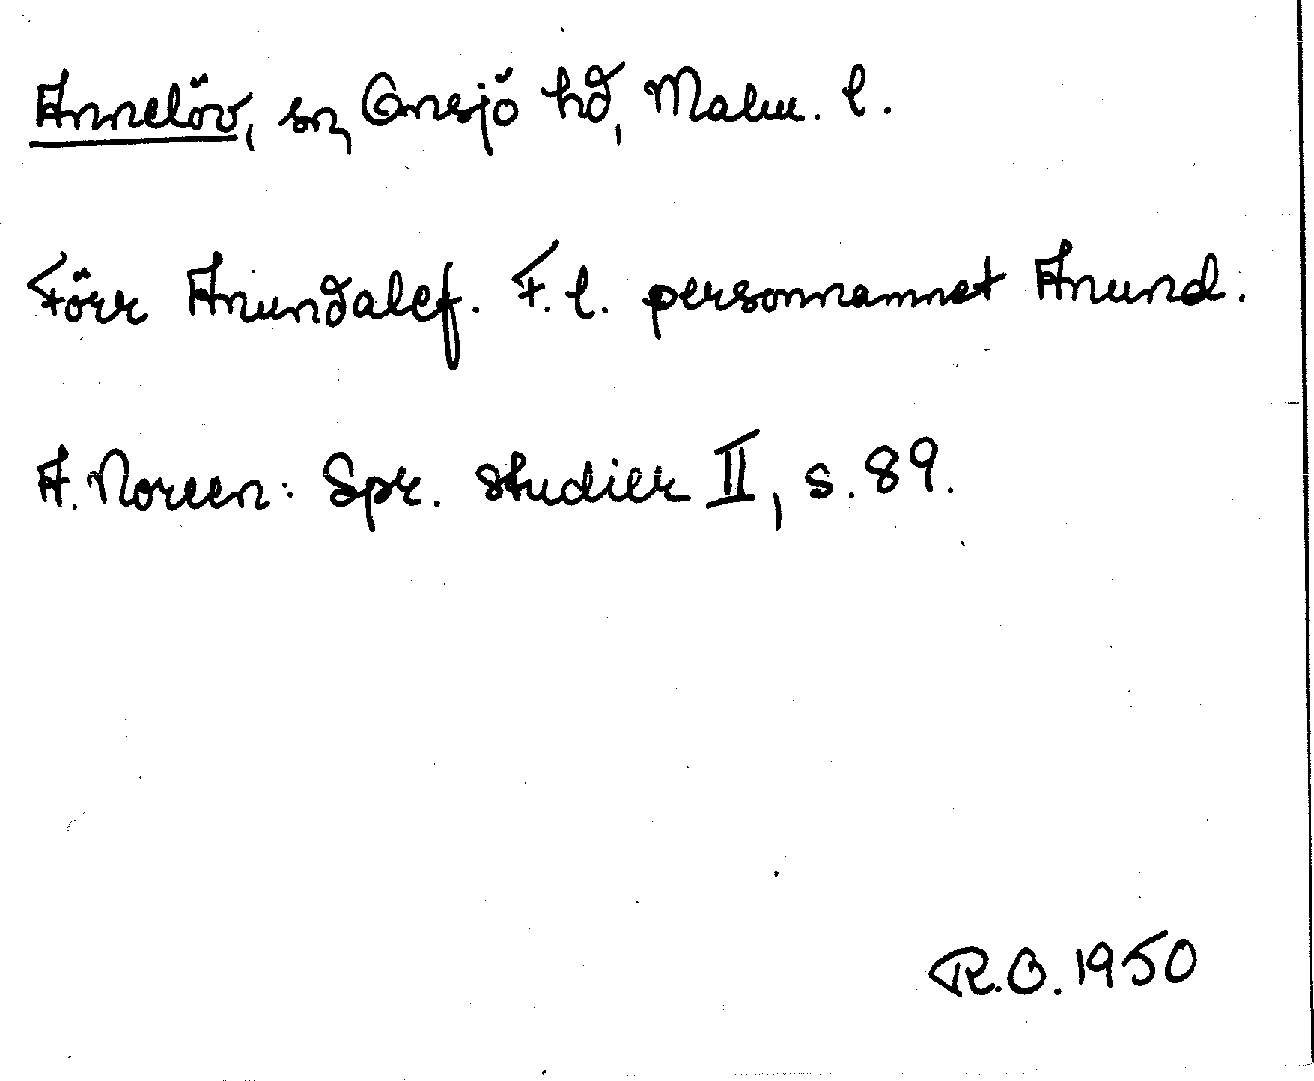 Annelöv, sn, Onsjö hd, Malm. l.
Förr Anundalef. F. l. personnamnet Anund.
A. Noreen: Spr. studier II, s. 89.
R.O. 1950